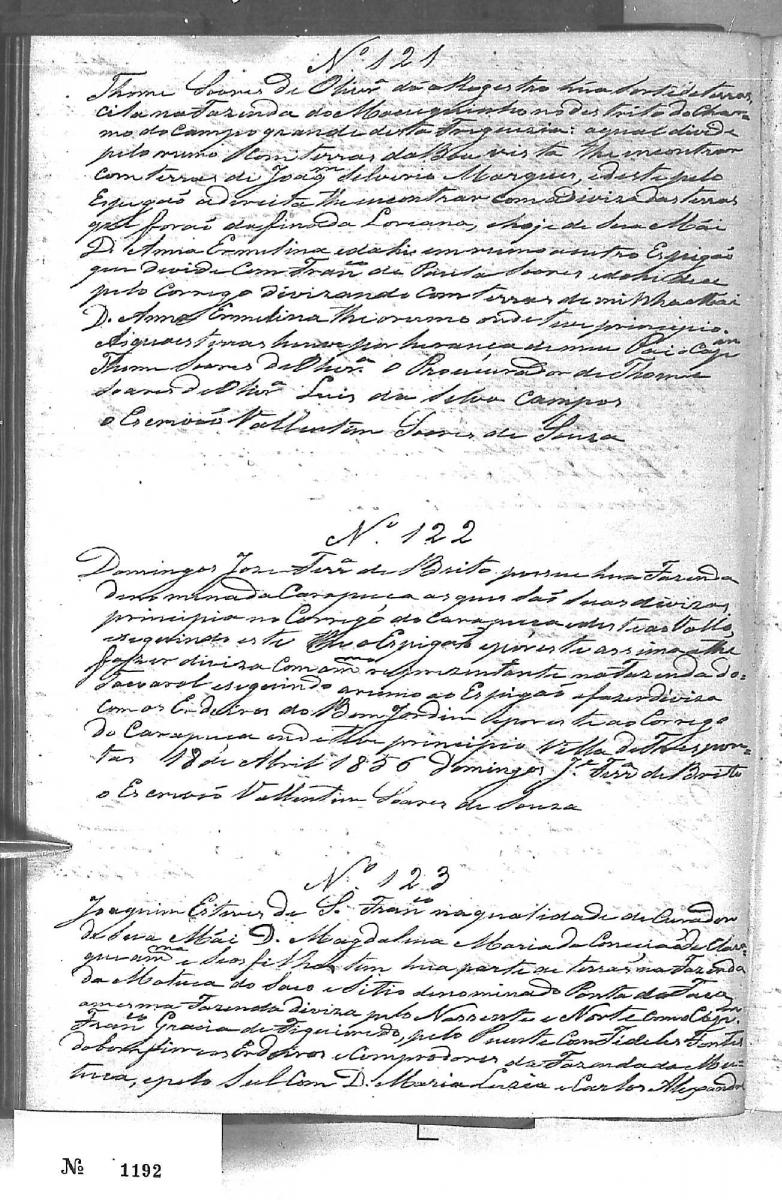 Nº 121
Thome Soares de Olivrª dá a Registro hũa sorte de terras,
cita na Fazenda do no destrito do
mo do Campo grande desta Freguezia: a qual divide
pelo rumo com terras da Boa vista the encontrar
com terras de Joaqm Silverio Marques, e deste pelo
Espigaõ a direita the encontrar com a diviza das terras
q foraõ da finada Loriana, e hoje de Sua Mãi
D. Anna Ermelina e dahi em rumo a outro Espigaõ
que divide Com Franco de Paula Soares e dahi dece
pelo Corrego divizando com terras de minha Mãi
D. Anna Ermelina the o rumo onde teve principio.
As quaes terras houve por herança de meu Pai o Capam
Thome Soares de Olivrª O Procurador de Thome
Soares de Olivrª Luis da Silva Campos
o Escrivaõ Vallentim Soares de Souza
Nº 122
Domingos Jose Ferrª de Brito possue hua Fazenda
denominada Carapuca as quais saõ suas divizas,
principia no Corrego do Carapuca e deste ao Vallo,
e seguindo este the o Espigaõ e por este assima the
fazer diviza com a mma reprezentante na Fazenda do
e seguindo a rumo ao Espigaõ e fazer diviza
com os Erdeiros do Bom Jardim e por este ao Corrego
do Carapuca onde teve principio Villa de Tres pon-
tas 18 de Abril 1856 Domingos Je Ferrª de Brito
o Escrivaõ Vallentim Soares de Souza
Nº 123
Joaquim Esteves de S. Franco na qualidade de Curador
de Sua Mãi D. Magdalena Maria da Conceicaõ de Clara
que a mma e seos filhos tem hua parte de terras na Fazenda
da Mutuca do Saco e Sitio denominado Ponta da
a mesma Fazenda diviza pelo Nascente e Norte Com o Capam
Franco Gracia de Figueiredo, pelo Puente Com Fideles Fontes
do Erdeiros e Compradores da Fazenda da Mu-
tuca, e pelo Sul Com D. Maria Luzia e Carlos
Nº 1192